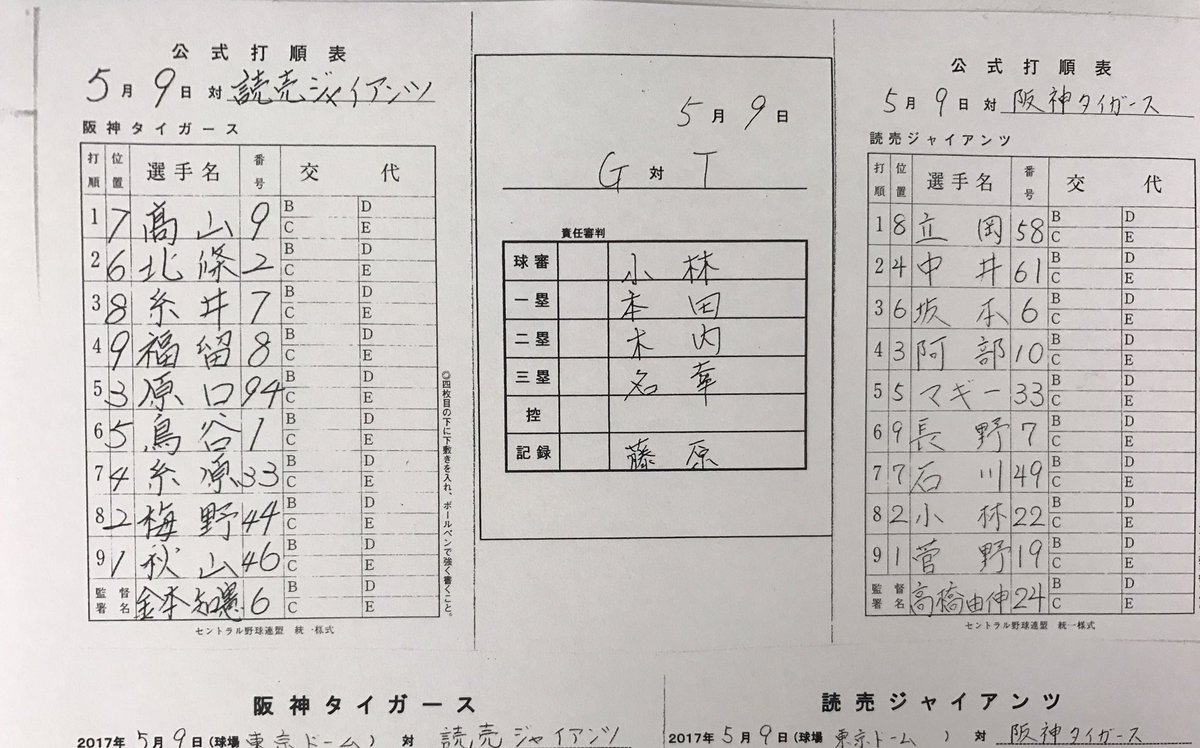 公式打順表
5月9日 対 読売ジャイアンツ
阪神タイガース
打順 位置 選手名 番号 交代
1 7 髙山 9 B D C E
2 6 北條 2 B D C E
3 8 糸井 7 B D C E
4 9 福留 8 B D C E
5 3 原口 94 B D C E
6 5 鳥谷 1 B D C E
7 4 糸原 33 B D C E
8 2 梅野 44 B D C E
9 1 秋山 46 B D C E
監督署名 金本知憲 6 B D C E
セントラル野球連盟 統一様式
◎四枚目の下に下敷きを入れ、ボールペンで強く書くこと。
5月9日
G 対 T
責任審判
球審 小林
一塁 本田
二塁 木内
三塁 名幸
控
記録 藤原
公式打順表
5月9日 対 阪神タイガース
読売ジャイアンツ
打順 位置 選手名 番号 交代
1 8 立岡 58 B D C E
2 4 中井 61 B D C E
3 6 坂本 6 B D C E
4 3 阿部 10 B D C E
5 5 マギー 33 B D C E
6 9 長野 7 B D C E
7 7 石川 49 B D C E
8 2 小林 22 B D C E
9 1 菅野 19 B D C E
監督署名 高橋由伸 24 B D C E
セントラル野球連盟 統一様式
阪神タイガース
2017年5月9日(球場 東京ドーム) 対 読売ジャイアンツ
読売ジャイアンツ
2017年5月9日(球場 東京ドーム) 対 阪神タイガース